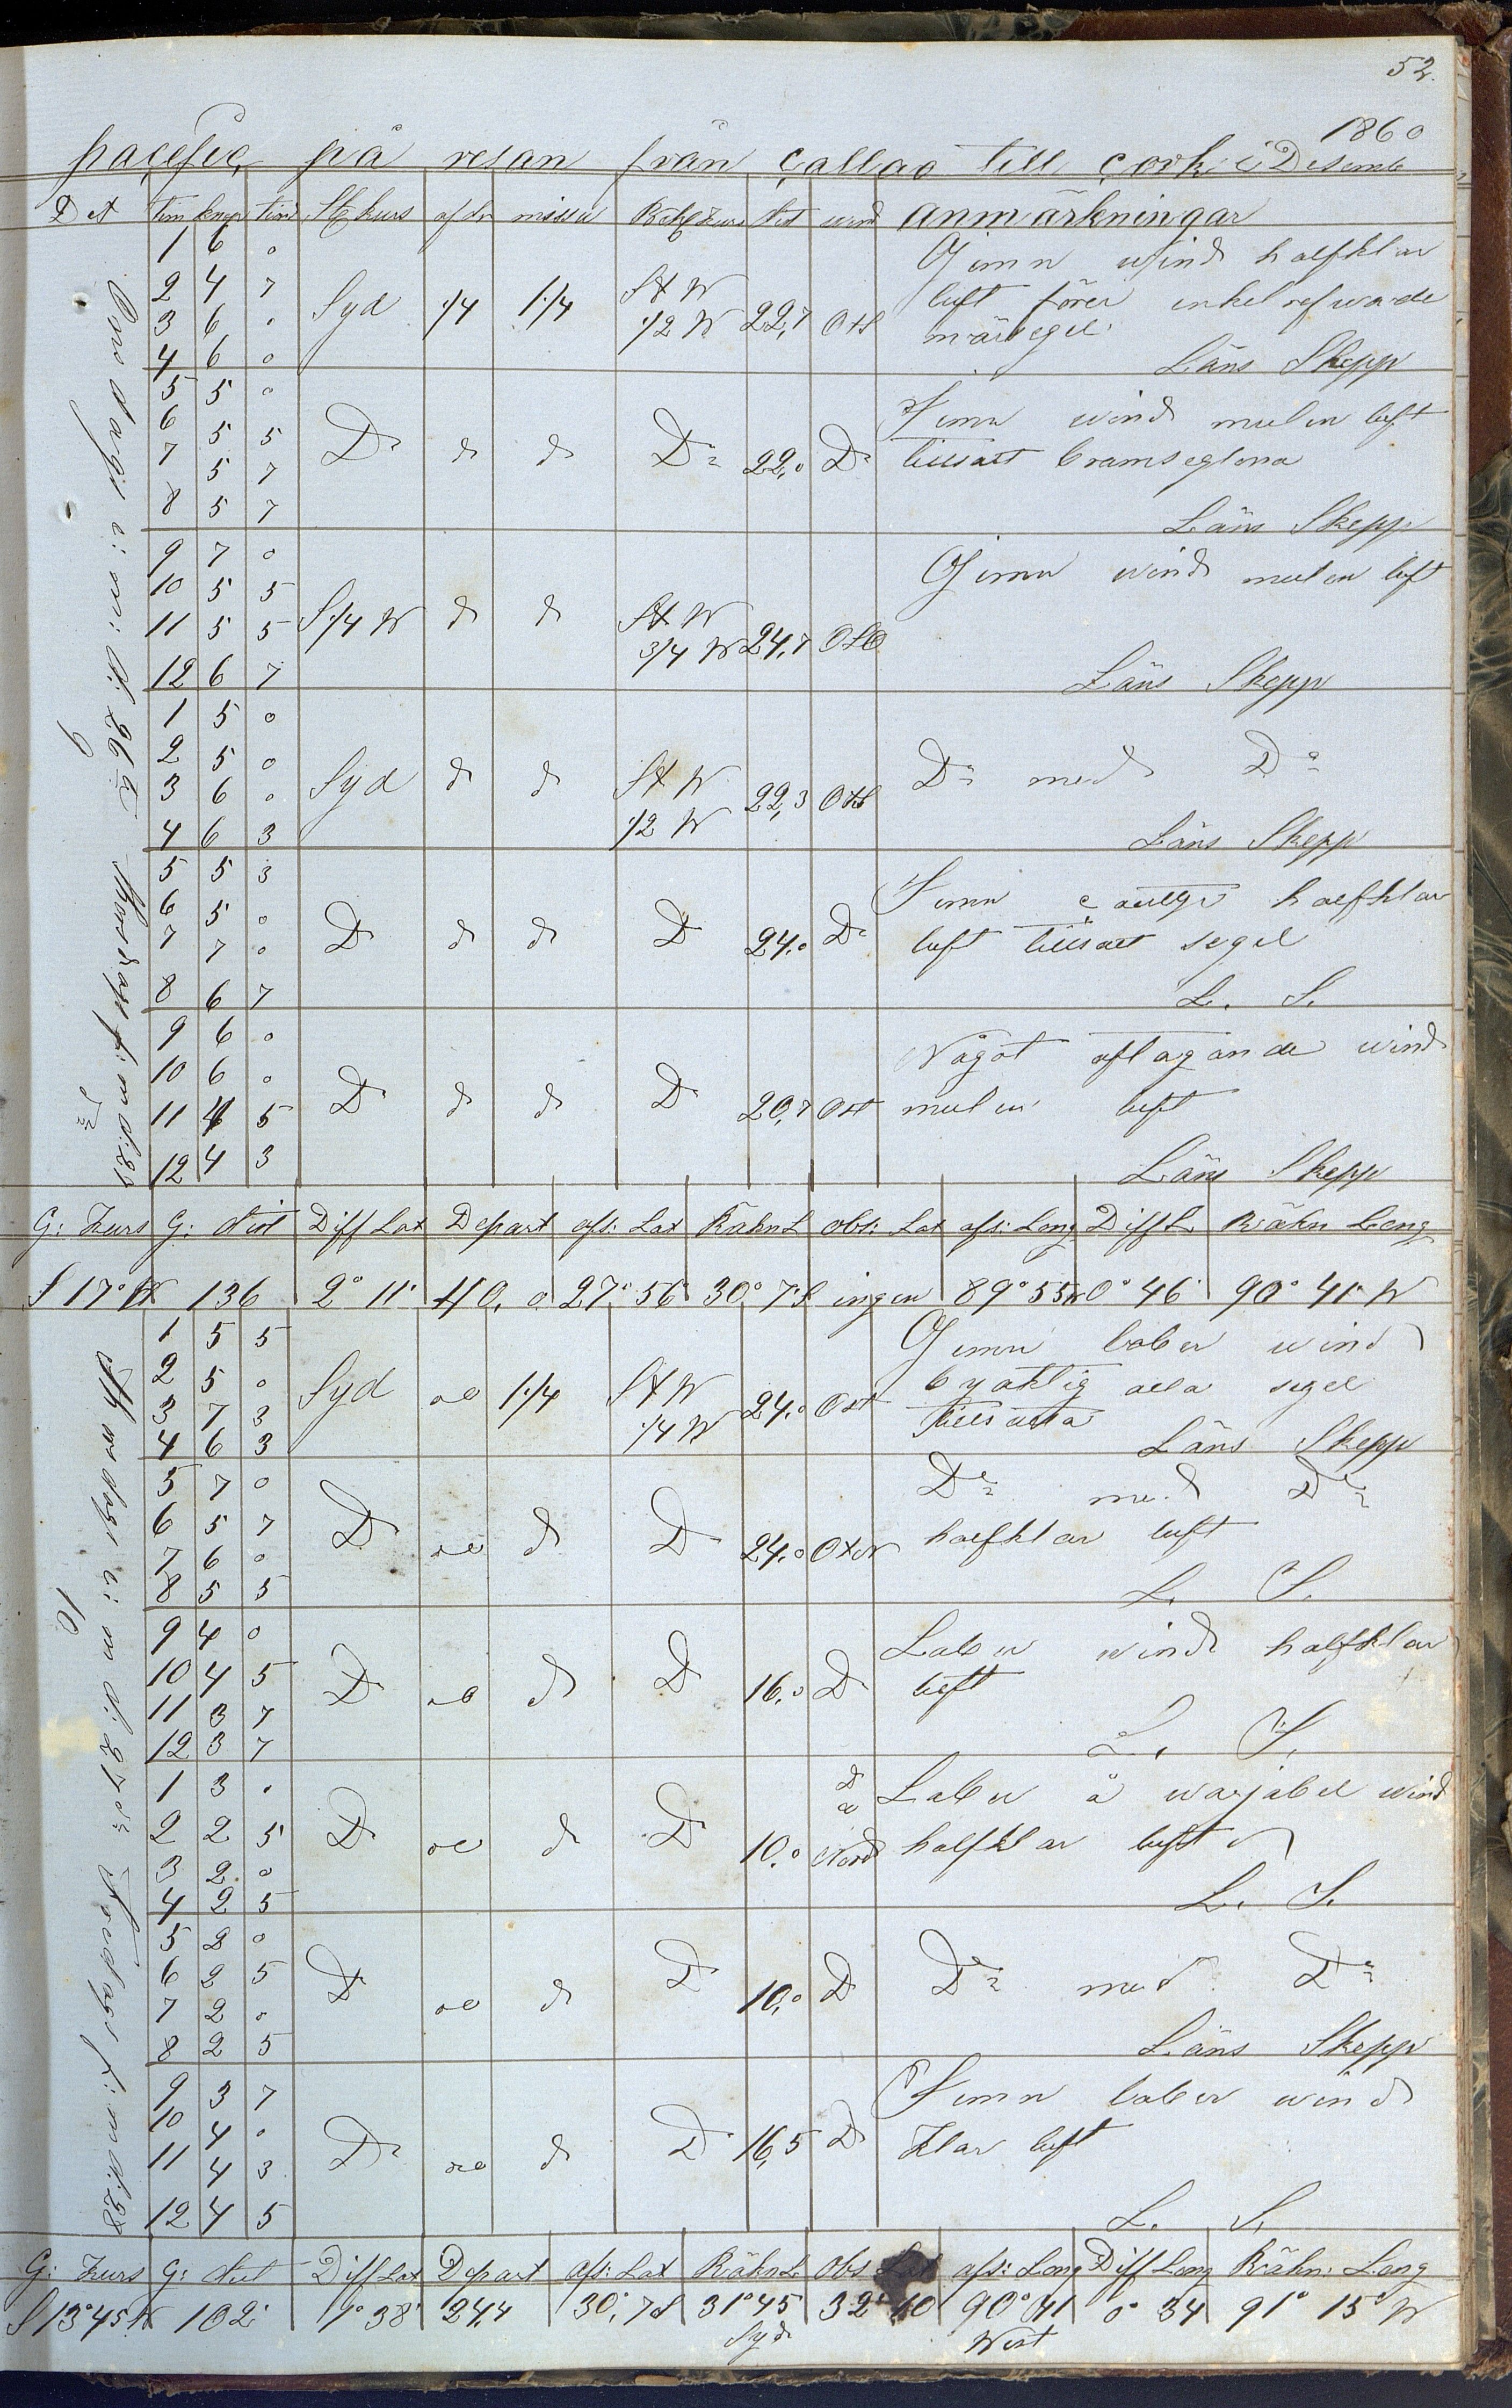 52.
1860
pacefic på resan från Callao till Cork i Desemb
Dat tim knop tiond St kurs afdr missv Beh kurs dist wind anmärkningar
Onsdagd e: m: d: 26de Thorsdagd f: m d: 27
9
1 6 0
2 4 7
3 6 0
4 6 0
Syd 1/4 1 1/4 StW 1/2 W 22,7 OtS
Gimn wind halfklar
luft förer enkelrefwade
märsegel.
Läns Skepp
5 5 0
6 5 5
7 5 7
8 5 7
Do do do Do 22,0 Do
Gimn wind mulen luft
tillsatt bramseglena
Läns Skepp
9 7 0
10 5 5
11 5 5
12 6 7
S 1/4 W do do StW 3/4 W 24,7 OSO
Gimn wind mulen luft
Läns Skepp
1 5 0
2 5 0
3 6 0
4 6 3
Syd do do StW 1/2 W 22,3 OtS
Do med Do
Läns Skepp
5 5 3
6 5 0
7 7 0
8 6 7
Do do do Do 24,0 Do
Gimn halfklar
luft tillsatt segel
L. S.
9 6 0
10 6 0
11 4 5
12 4 3
Do do do Do 20,7 Ost
Något aftagande wind
mulen luft
Läns Skepp
G: Kurs G: dist Diff Lat Depart afs: Lat Räkn L obs: Lat afs: Long Diff L. Räkn Long
S 17° W 136 2° 11' 40,0 27° 56' 30° 7' S ingen 89° 55 W 0° 46' 90° 41' W
Thorsdagd e: m d: 27de Fredagd f: m d: 28
10
1 5 5
2 5 0
3 7 3
4 6 3
Syd 1 1/4 StW 1/4 W 24,0 Ost
Gimn laber wind
byaktig alla segel
tillsatta
Läns Skepp
5 7 0
6 5 7
7 6 0
8 5 5
Do do Do 24,0 OtN
Do med Do
halfklar luft
L. S.
9 4 0
10 4 5
11 3 7
12 3 7
Do do Do 16,0 Do
Laber wind halfklar
luft
L. S.
1 3 0
2 2 5
3 2 0
4 2 5
Do do Do 10,0 Do a Nord
Laber å warjabel wind
halfklar luft
L. S.
5 2 0
6 2 5
7 2 0
8 2 5
Do do Do 10,0 Do
Do med Do
Läns Skepp
9 3 7
10 4 0
11 4 3
12 4 5
Do do Do 16,5 Do
Gimn laber wind
Klar luft
L. S.
G: Kurs G: dist Diff Lat Depart Afs: Lat Räkn L. Obs Lat afs: Long Diff Long Räkn: Long
S 13° 45 W 102' 1° 38' 24,4 30° 7 S 31° 45 Syd 32° 10 90° 41 West 0° 34 91° 15' W